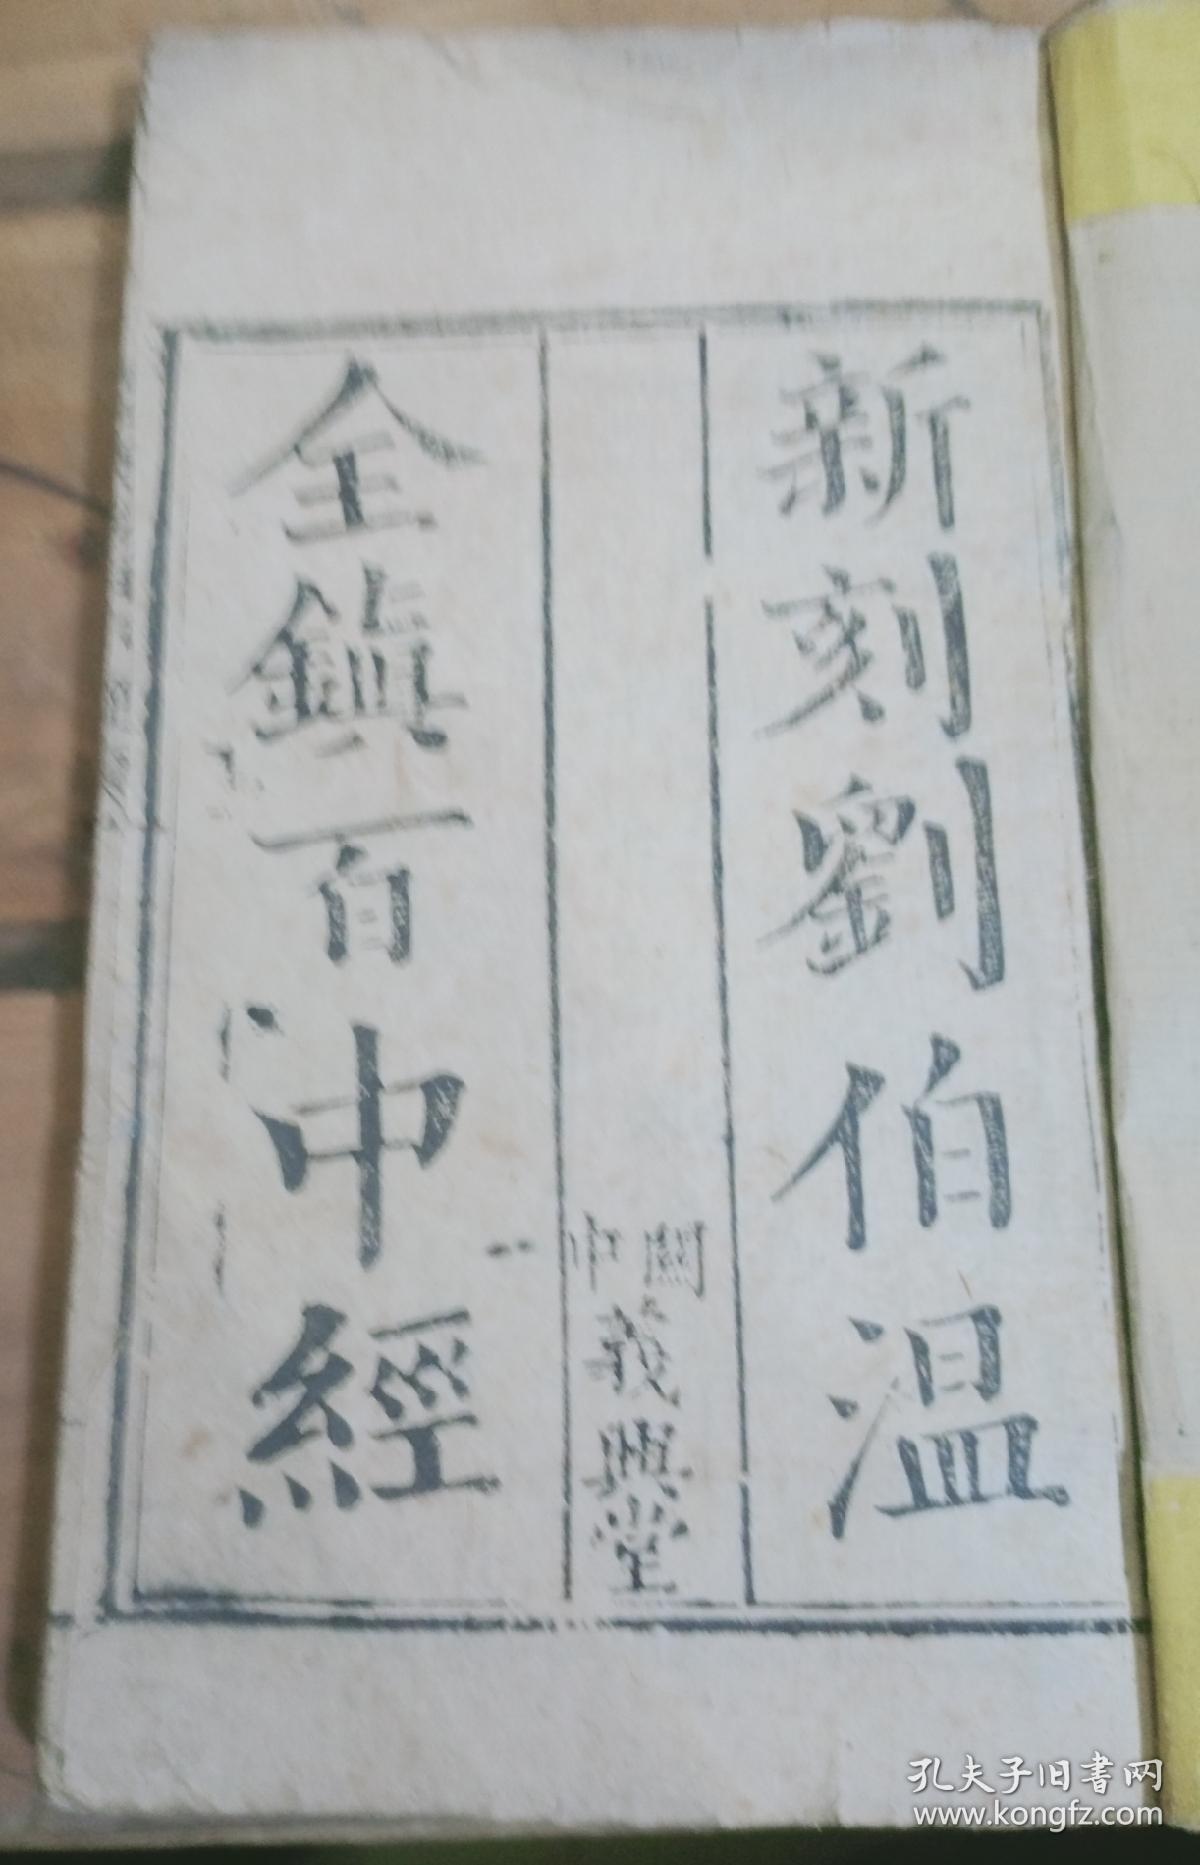 新刻劉伯温
關中
義興堂
全鎮百中經
孔夫子旧書网
www.kongfz.com